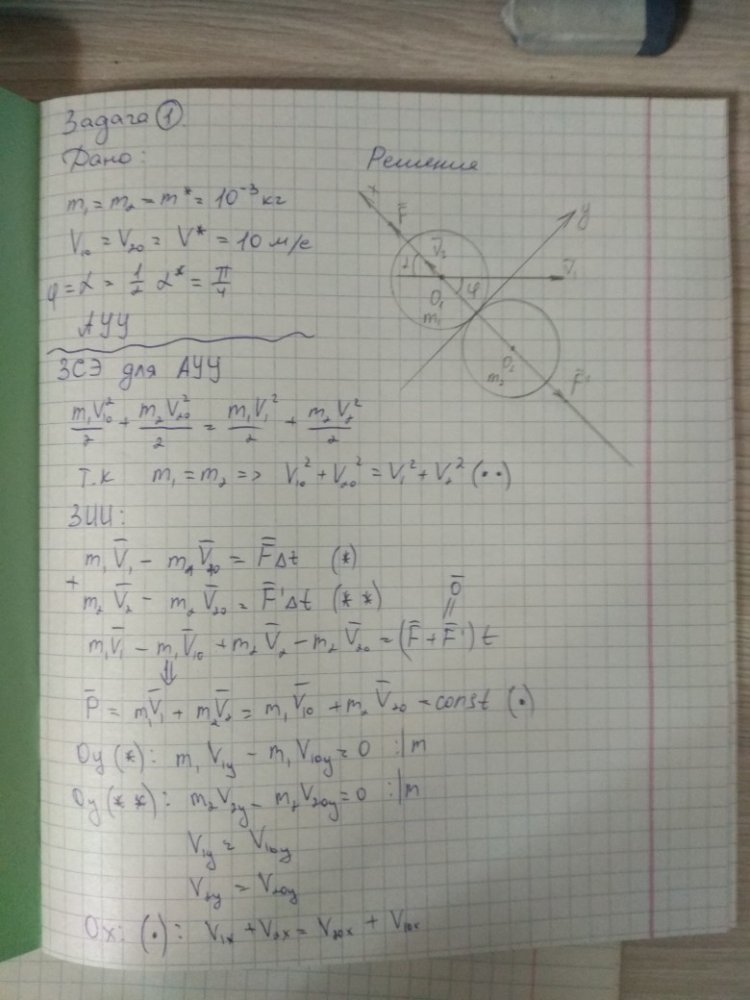 Задача ①.
Дано:
Решение
m₁ = m₂ = m* = 10⁻³ кг
V₁₀ = V₂₀ = V* = 10 м/с
φ = α = 1/2 α* = π/4
АУУ
x
F̄
y
V̄₂
V̄₁
α
φ
O₁
m₁
O₂
m₂
F̄'
ЗСЭ для АУУ
m₁V₁₀²/2 + m₂V₂₀²/2 = m₁V₁²/2 + m₂V₂²/2
т.к m₁ = m₂ => V₁₀² + V₂₀² = V₁² + V₂² (••)
ЗИИ:
m₁V̄₁ - m₁V̄₁₀ = F̄Δt (*)
+
m₂V̄₂ - m₂V̄₂₀ = F̄'Δt (**)
0̄
=
m₁V̄₁ - m₁V̄₁₀ + m₂V̄₂ - m₂V̄₂₀ = (F̄ + F̄')t
⇓
P̄ = m₁V̄₁ + m₂V̄₂ = m₁V̄₁₀ + m₂V̄₂₀ = const (•)
Oy (*): m₁V₁y - m₁V₁₀y = 0 :|m
Oy (**): m₂V₂y - m₂V₂₀y = 0 :|m
V₁y = V₁₀y
V₂y = V₂₀y
Ox: (•): V₁x + V₂x = V₂₀x + V₁₀x